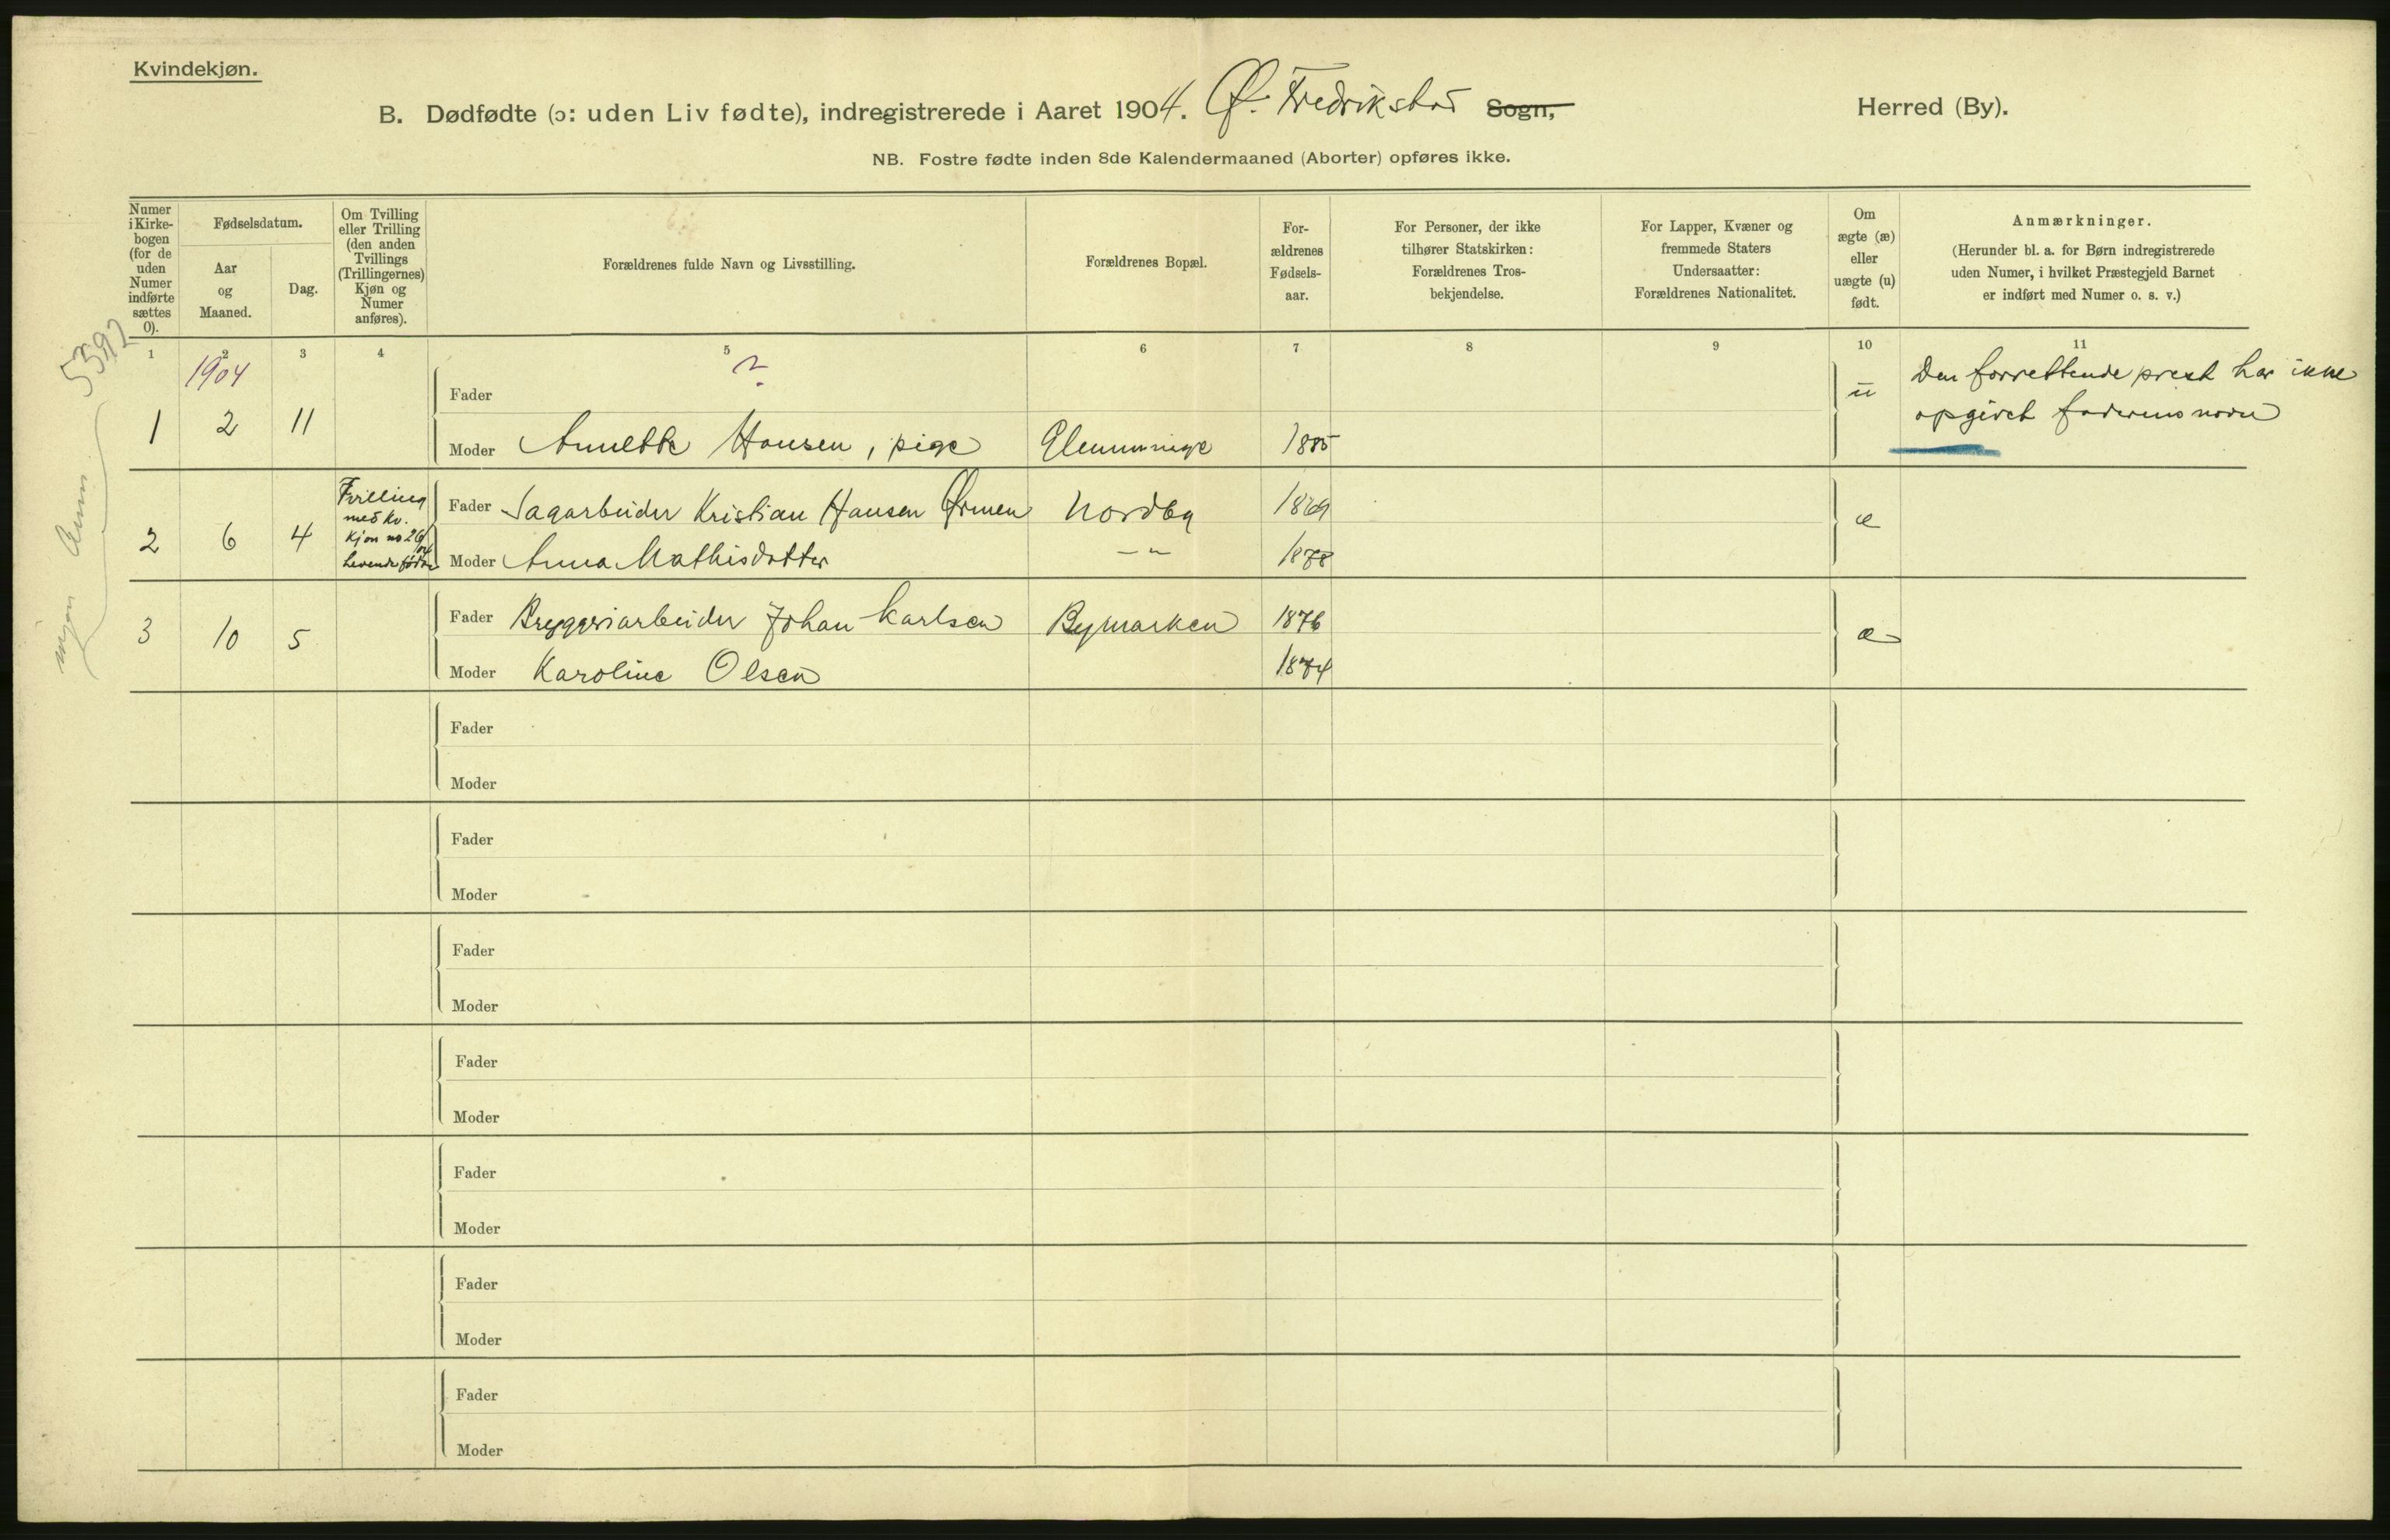 Kvindekjøn.
B. Dødfødte (ɔ: uden Liv fødte), indregistrerede i Aaret 1904. Ø. Fredrikstad Sogn, Herred (By).
NB. Fostre fødte inden 8de Kalendermaaned (Aborter) opføres ikke.
Numer
i Kirke-
bogen
(for de
uden
Numer
indførte
sættes
0).
Fødselsdatum.
Aar
og
Maaned.
Dag.
Om Tvilling
eller Trilling
(den anden
Tvillings
(Trillingernes)
Kjøn og
Numer
anføres).
Forældrenes fulde Navn og Livsstilling.
Forældrenes Bopæl.
For-
ældrenes
Fødsels-
aar.
For Personer, der ikke
tilhører Statskirken:
Forældrenes Tros-
bekjendelse.
For Lapper, Kvæner og
fremmede Staters
Undersaatter:
Forældrenes Nationalitet.
Om
ægte (æ)
eller
uægte (u)
født.
Anmærkninger.
(Herunder bl. a. for Børn indregistrerede
uden Numer, i hvilket Præstegjeld Barnet
er indført med Numer o. s. v.)
1 2 3 4 5 6 7 8 9 10 11
5392
1904
Fader ?
1 2 11
Moder Annette Hansen, pige Glemminge 1885
u
Den forrettende prest har ikke
opgivet faderens navn
2 6 4
Tvilling
med kv.
kjøn no 26
af
levende fødte
Fader Sagarbeider Kristian Hansen Ørmen Nordby 1869
Moder Anna Mathisdatter – „ 1878
æ
3 10 5
Fader Bryggeriarbeider Johan Karlsen Bymarken 1876
Moder Karoline Olsen 1874
æ
Fader
Moder
Fader
Moder
Fader
Moder
Fader
Moder
Fader
Moder
Fader
Moder
Fader
Moder